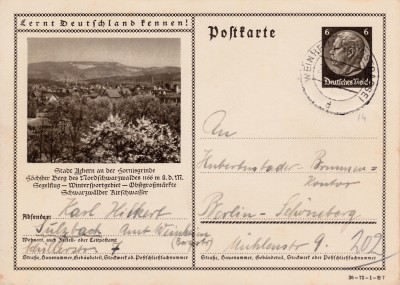 Lernt Deutschland kennen!
Postkarte
6 6
Deutsches Reich
WEINHEIM
d
14
Stadt Achern an der Hornisgrinde
Höchster Berg des Nordschwarzwaldes 1166 m ü. d. M.
Segelflug — Wintersportgebiet — Obstgroßmärkte
Schwarzwälder Kirschwasser
Absender: Karl Hilkert
Sulzbach Amt Weinheim
(Bergstr)
Wohnort, auch Zustell- oder Leitpostamt
Schillerstr 7
Straße, Hausnummer, Gebäudeteil, Stockwerk od. Postschließfachnummer
An
Hubertusbader-Brunnen-
Kontor
Berlin-Schöneberg
Mühlenstr 9. 202
Straße, Hausnummer, Gebäudeteil, Stockwerk oder Postschließfachnummer